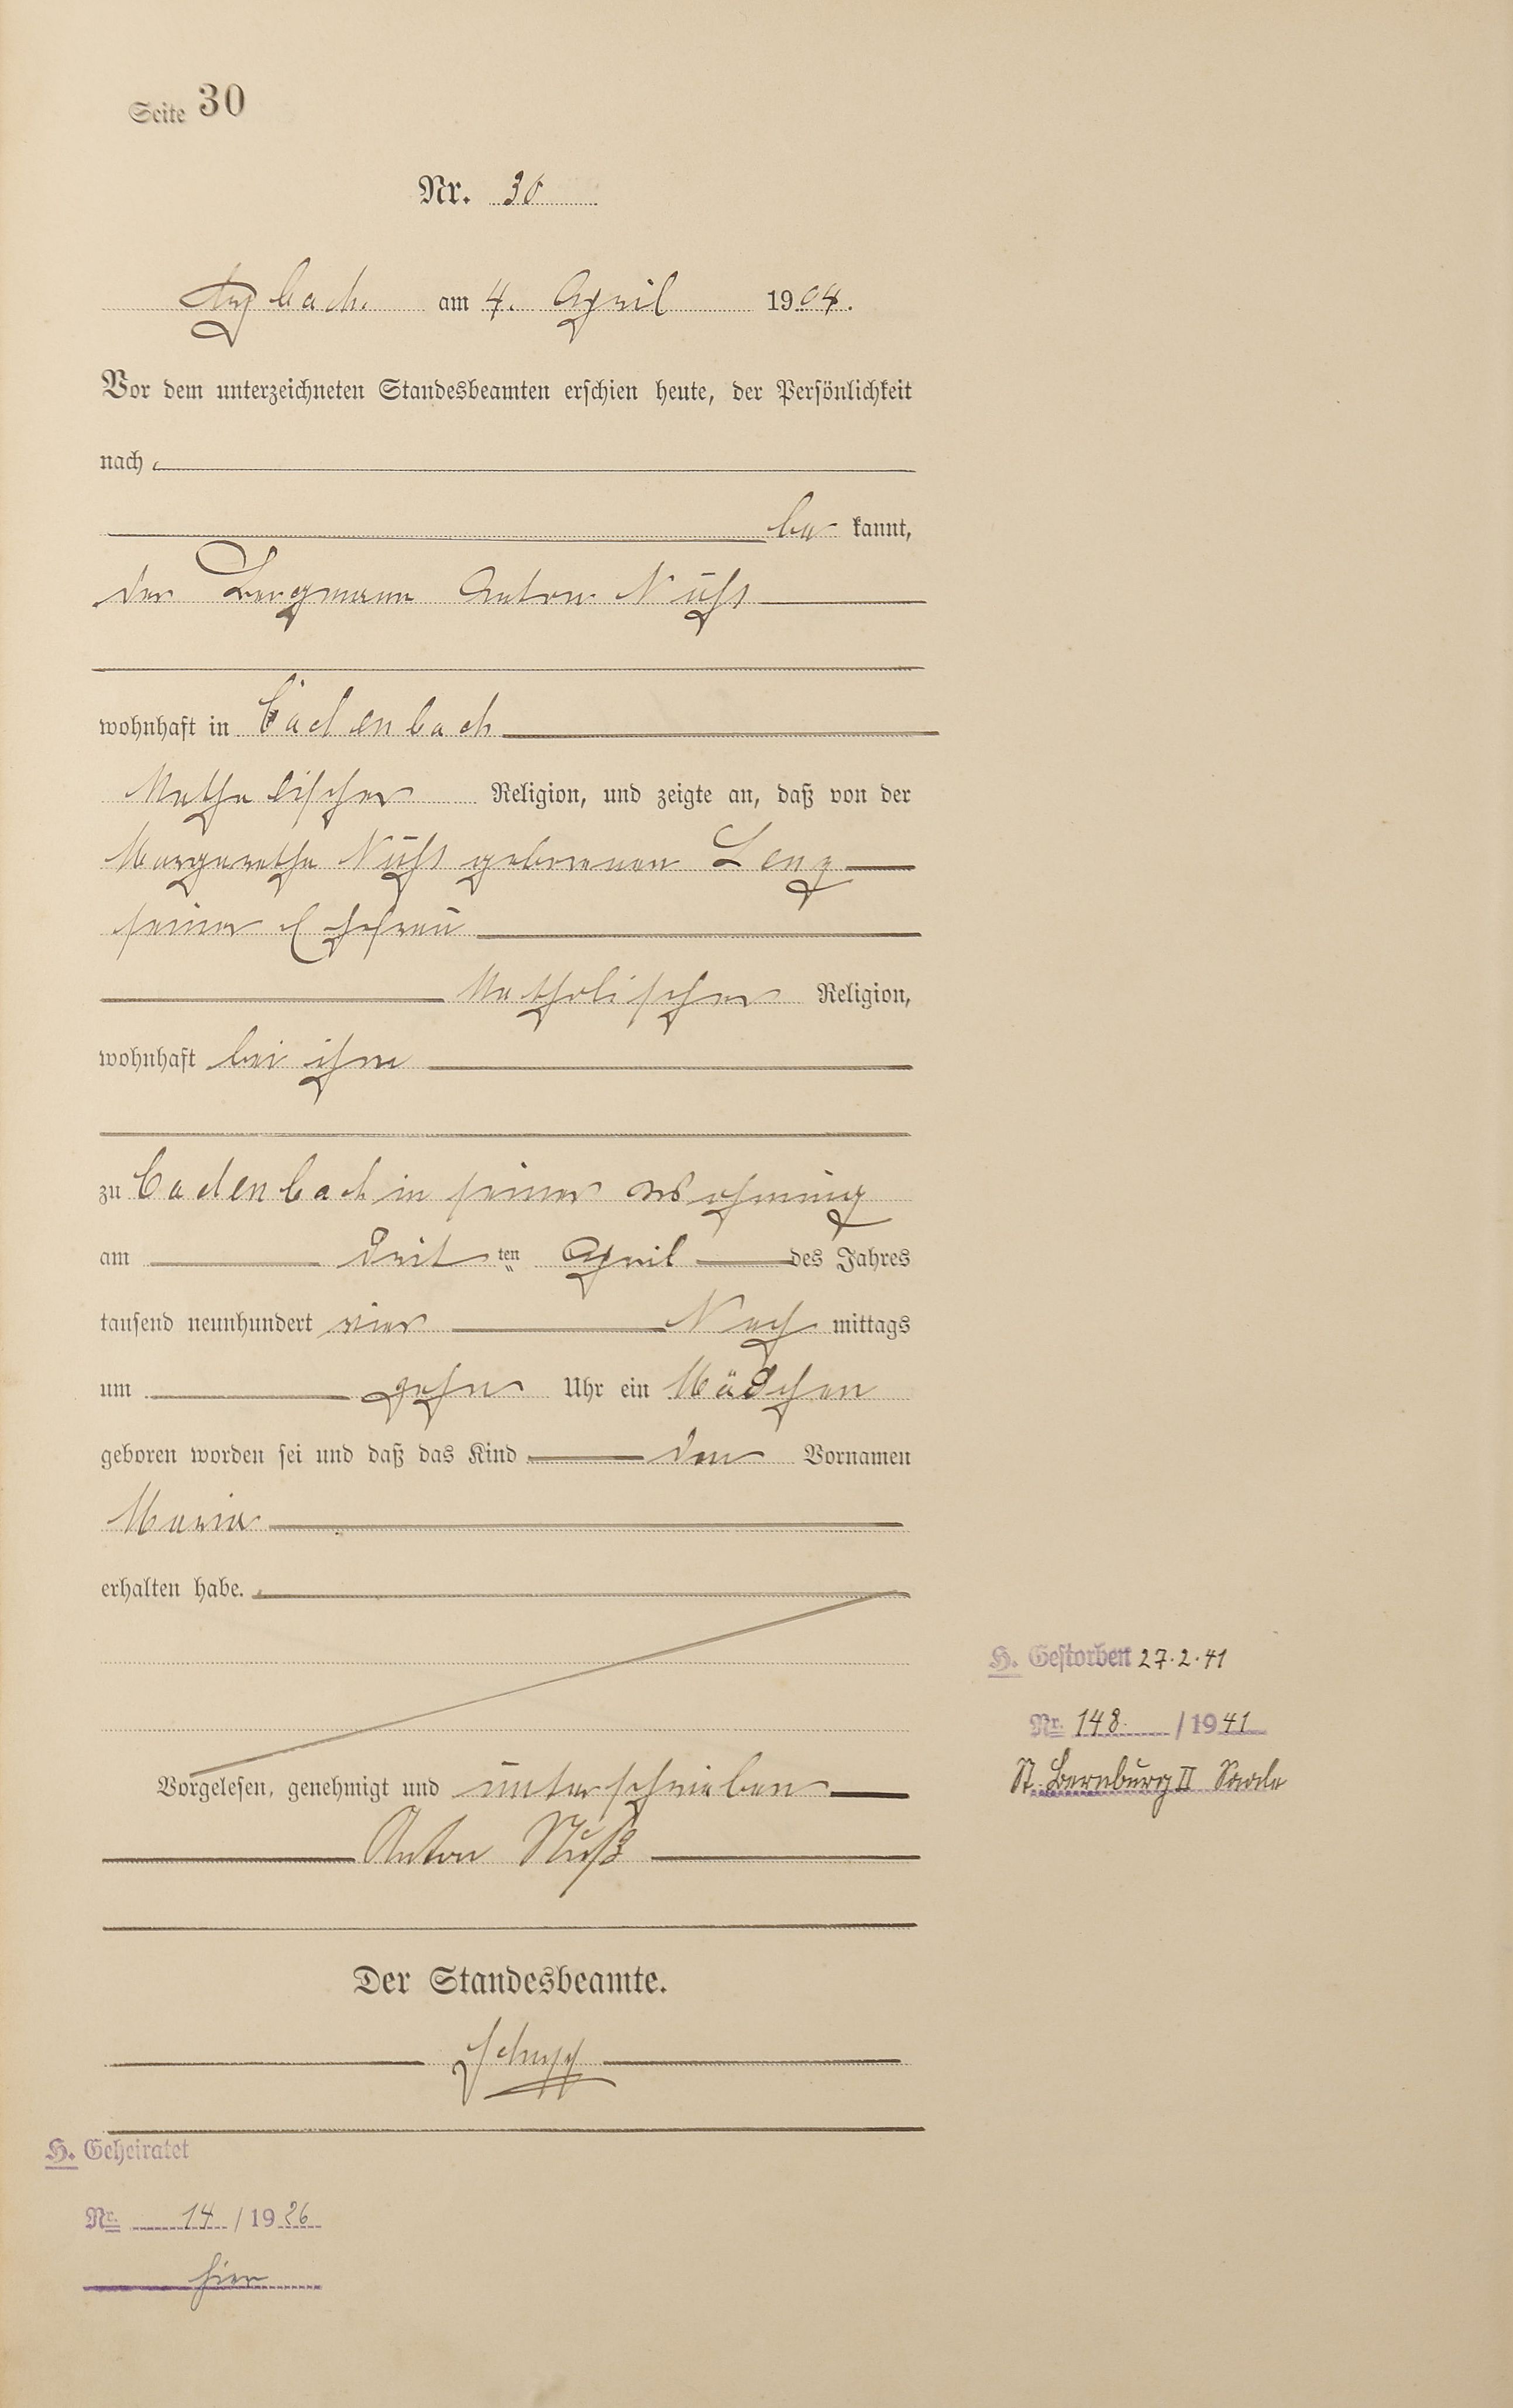 Seite 30
Nr. 30
Arzbach. am 4. April 1904.
Vor dem unterzeichneten Standesbeamten erschien heute, der Persönlichkeit
nach
be kannt,
der Bergmann Anton Nuhs
wohnhaft in Cadenbach
Katholischer Religion, und zeigte an, daß von der
Margaretha Nuhs geborenen Lenz
seiner Ehefrau
Katholischer Religion,
wohnhaft bei ihm
zu Cadenbach in seiner Wohnung
am drit ten April des Jahres
tausend neunhundert vier Nach mittags
um zehn Uhr ein Mädchen
geboren worden sei und daß das Kind den Vornamen
Maria
erhalten habe.
Vorgelesen, genehmigt und unterschrieben
Anton Nuß
Der Standesbeamte.
Schupp
H. Geheiratet
Nr. 14 / 1926
hier
H. Gestorben 27.2.41
Nr. 148. / 1941
St. Bernburg II Saale